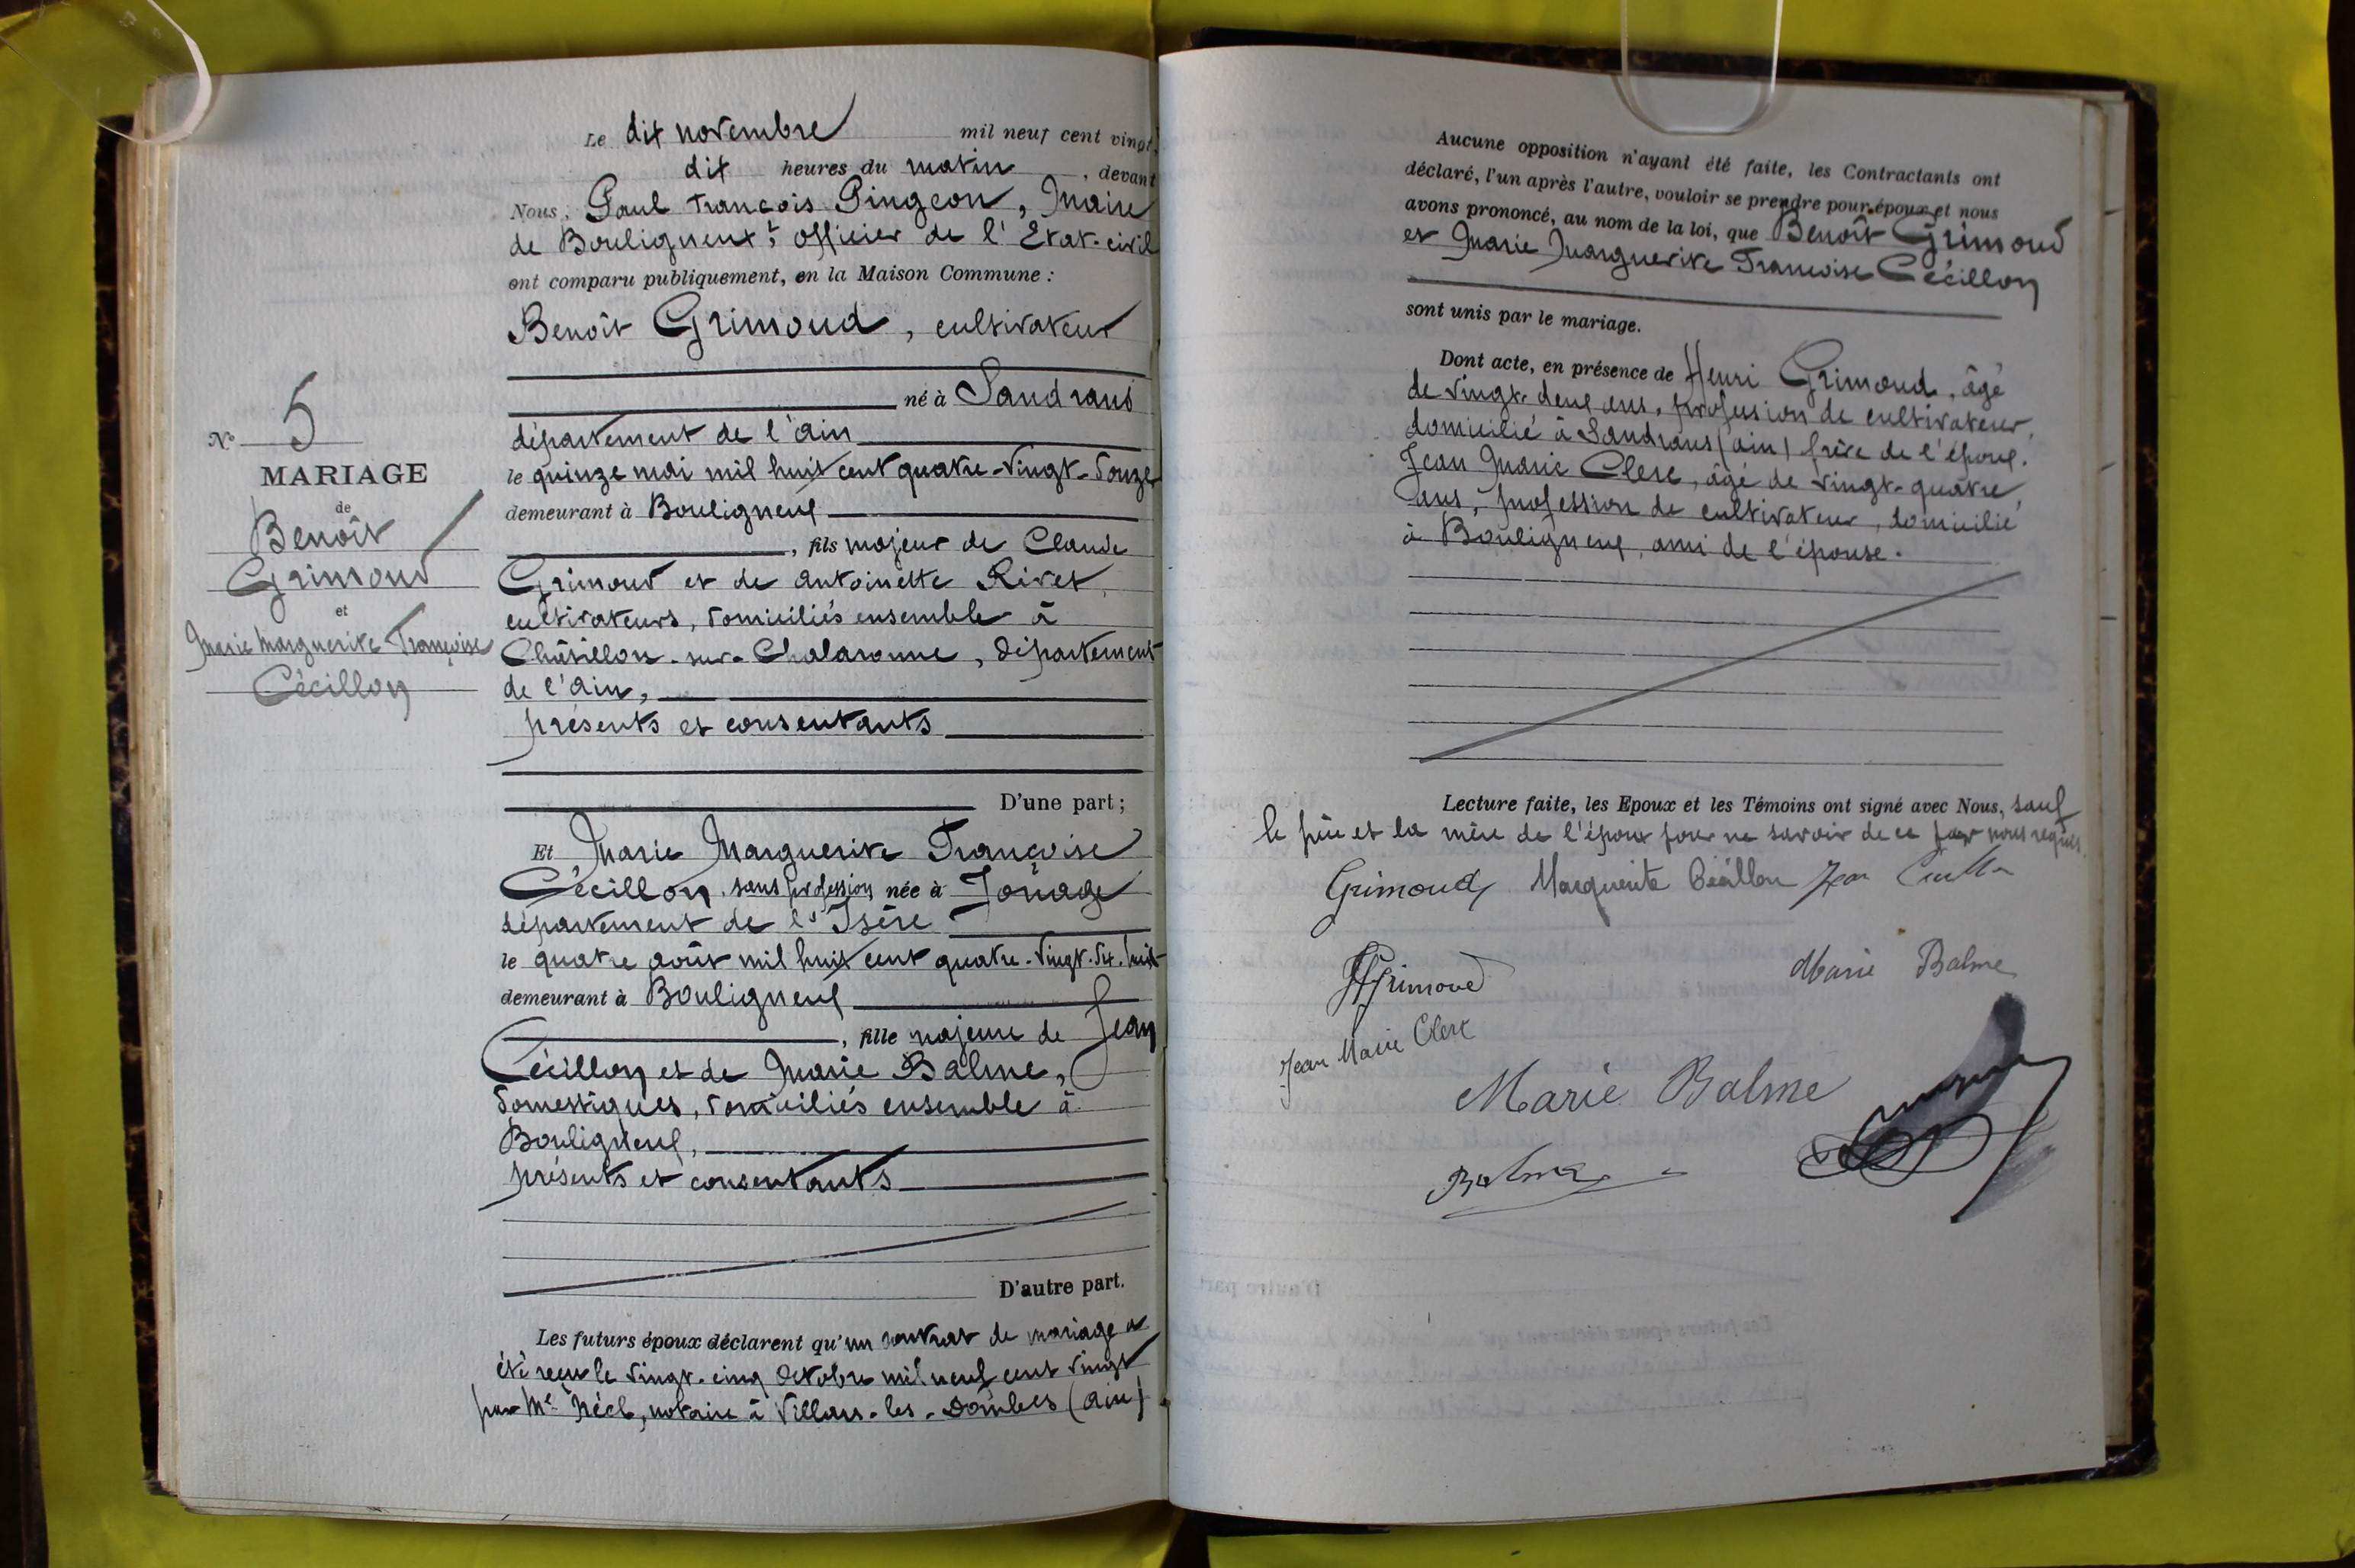 Le dix novembre mil neuf cent vingt,
dix heures du matin, devant
Nous, Paul François Pingeon, Maire
de Bouligneux, officier de l'Etat-civil
ont comparu publiquement, en la Maison Commune :
Benoît Grimoud, cultivateur
né à Sandrans
département de l'ain
le quinze mai mil huit cent quatre-vingt-douze
demeurant à Bouligneux
, fils majeur de Claude
Grimoud et de antoinette Rivet,
cultivateurs, domiciliés ensemble à
Châtillon-sur-Chalaronne, département
de l'ain,
présents et consentants
D'une part ;
Et Marie Marguerite Françoise
Cécillon, sans profession née à Jonage
département de l'Isère
le quatre août mil huit cent quatre-vingt-dix-huit
demeurant à Bouligneux
, fille majeure de Jean
Cécillon et de Marie Balme,
domestiques, domiciliés ensemble à
Bouligneux,
présents et consentants
D'autre part.
Les futurs époux déclarent qu'un contrat de mariage a
été reçu le vingt-cinq octobre mil neuf cent vingt
par Me notaire à Villars-les-Dombes (ain)
N° 5
MARIAGE
de
Benoît
Grimoud
et
Marie Marguerite Françoise
Cécillon
Aucune opposition n'ayant été faite, les Contractants ont
déclaré, l'un après l'autre, vouloir se prendre pour époux et nous
avons prononcé, au nom de la loi, que Benoît Grimoud
et Marie Marguerite Françoise Cécillon
sont unis par le mariage.
Dont acte, en présence de Henri Grimoud, âgé
de vingt-deux ans, profession de cultivateur,
domicilié à Sandrans (ain) frère de l'époux.
Jean Marie Clerc, âgé de vingt-quatre
ans, profession de cultivateur, domicilié
à Bouligneux, ami de l'épouse.
Lecture faite, les Epoux et les Témoins ont signé avec Nous, sauf
le père et la mère de l'époux pour ne savoir de ce par nous requis.
Grimoud Marguerite Cécillon Jean Cécillon
H Grimoud Marie Balme
Jean Marie Clerc
Marie Balme
Balme